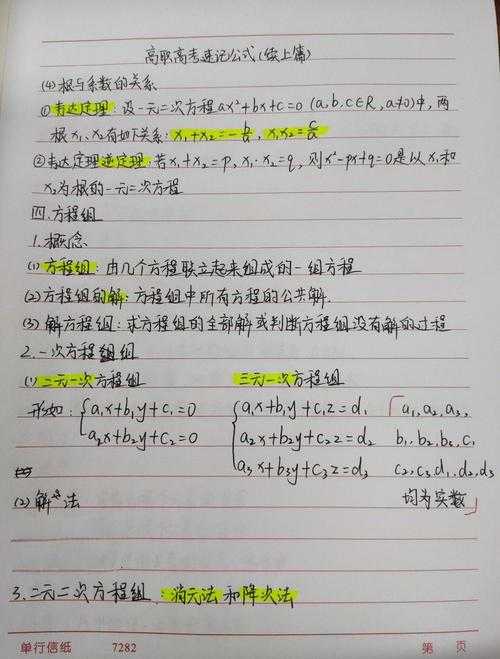 高职高考速记公式(续上篇)
(4)根与系数的关系
①表达定理:设一元二次方程ax²+bx+c=0(a,b,c∈R,a≠0)中,两
根x₁、x₂有如下关系:x₁+x₂=-b/a,x₁x₂=c/a
②表达定理逆定理:若x₁+x₂=p,x₁·x₂=q,则x²-px+q=0是以x₁和
x₂为根的一元二次方程
四.方程组
1.概念
(1)方程组:由几个方程联立起来组成的一组方程
(2)方程组的解:方程组中所有方程的公共解.
(3)解方程组:求方程组的全部解或判断方程组没有解的过程
2.一次方程组组
(1)二元一次方程组 三元一次方程组
形如:{a₁x+b₁y+c₁=0 {a₁x+b₁y+c₁z=d₁ 「a₁,a₂,a₃,
a₂x+b₂y+c₂=0 a₂x+b₂y+c₂z=d₂ b₁,b₂,b₃,c₁
a₃x+b₃y+c₃z=d₃ c₂,c₃,d₁,d₂,d₃
(2)解法 均为实数」
3.二元二次方程组:消元法和降次法
单行信纸 7282 第 页